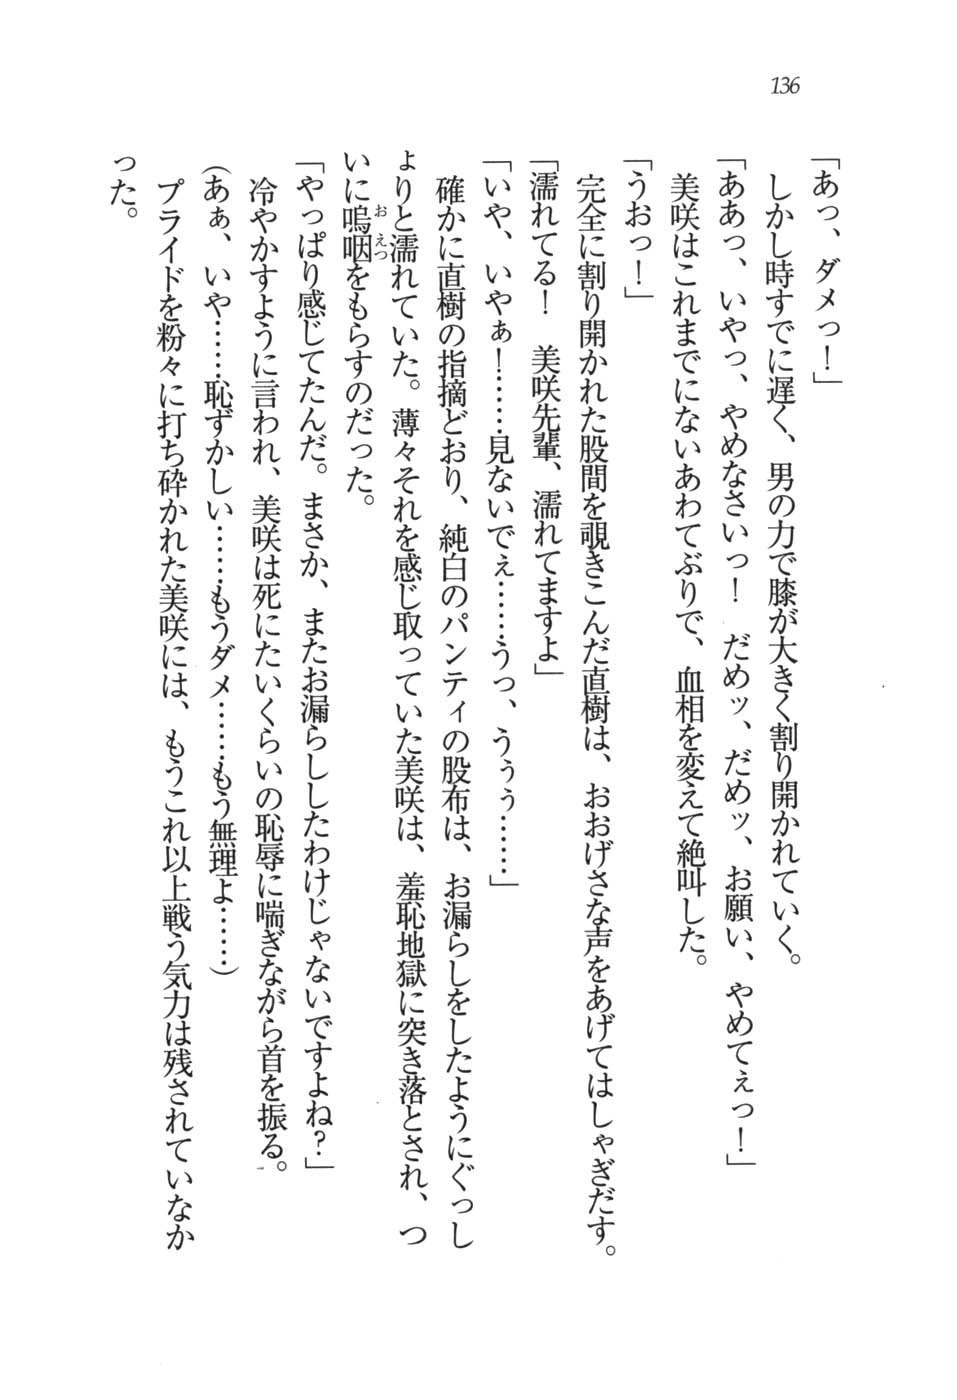 136
「あっ、ダメっ！」
しかし時すでに遅く、男の力で膝が大きく割り開かれていく。
「ああっ、いやっ、やめなさいっ！　だめッ、だめッ、お願い、やめてぇっ！」
美咲はこれまでにないあわてぶりで、血相を変えて絶叫した。
「うおっ！」
完全に割り開かれた股間を覗きこんだ直樹は、おおげさな声をあげてはしゃぎだす。
「濡れてる！　美咲先輩、濡れてますよ」
「いや、いやぁ！……見ないでぇ……うっ、うぅぅ……」
確かに直樹の指摘どおり、純白のパンティの股布は、お漏らしをしたようにぐっし
ょりと濡れていた。薄々それを感じ取っていた美咲は、羞恥地獄に突き落とされ、つ
いに嗚咽おえつをもらすのだった。
「やっぱり感じてたんだ。まさか、またお漏らししたわけじゃないですよね？」
冷やかすように言われ、美咲は死にたいくらいの恥辱に喘ぎながら首を振る。
（あぁ、いや……恥ずかしい……もうダメ……もう無理よ……）
プライドを粉々に打ち砕かれた美咲には、もうこれ以上戦う気力は残されていなか
った。